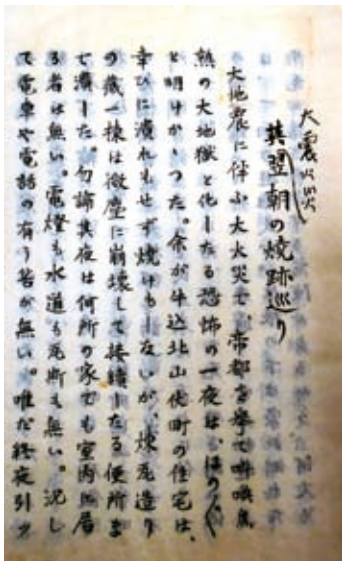 大震火災
其翌朝の焼跡巡り
大地震に伴ふ大火災で、帝都を挙て叫喚焦
熱の大地獄と化したる恐怖の一夜は、ほの〴〵
と明けかゝつた。余が牛込北山伏町の住宅は、
幸ひに潰れもせず焼けもしないが、煉瓦造り
の蔵一棟は微塵に崩壊して接続したる便所ま
で潰した。勿論其夜は何所の家でも室内に居
る者は無い。電燈も水道も瓦斯も無い。況し
て電車や電話の有う筈が無い。唯だ終夜引ツ